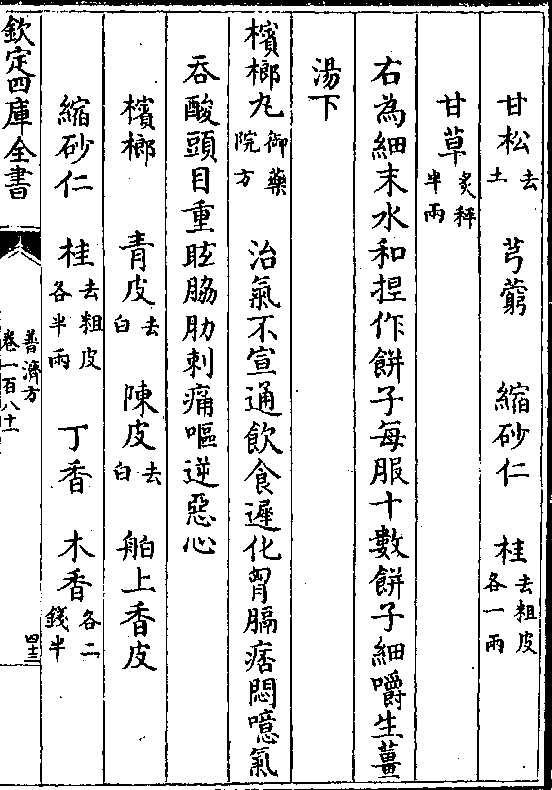 甘松去土　芎藭　縮砂仁　桂去粗皮各一兩
甘草炙秤半兩
右為細末水和捏作餅子每服十數餅子細嚼生薑
湯下
檳榔丸御藥院方　治氣不宣通飲食遲化胷膈痞悶噫氣
吞酸頭目重眩脇肋刺痛嘔逆惡心
檳榔　青皮去白　陳皮去白　舶上香皮
縮砂仁　桂去粗皮各半兩　丁香　木香各二錢半
欽定四庫全書
普濟方
卷一百八十一
四十三